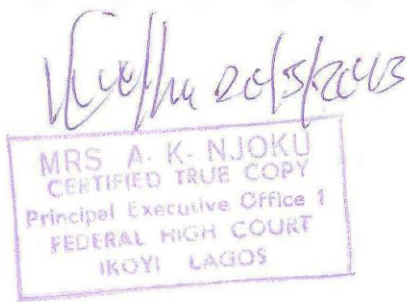 20/3/2013
MRS A. K. NJOKU
CERTIFIED TRUE COPY
Principal Executive Office 1
FEDERAL HIGH COURT
IKOYI LAGOS